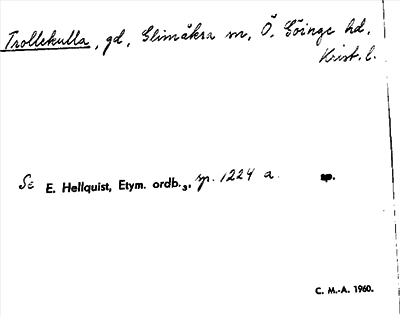 Trollekulla, gd, Glimåkra sn, Ö. Göinge hd,
Krist. l.
Se E. Hellquist, Etym. ordb.₃, sp. 1224 a. sp.
C. M.-A. 1960.